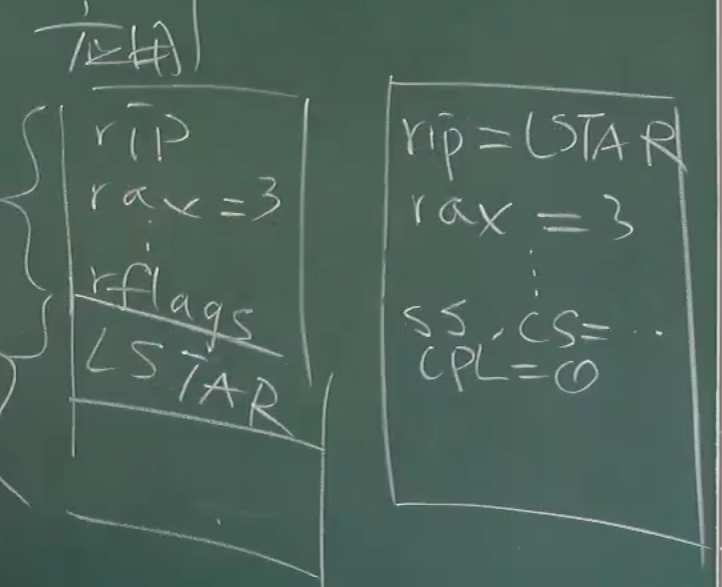 rip
rax = 3
⋮
rflags
LSTAR
rip = LSTAR
rax = 3
⋮
SS, CS = ...
CPL = 0